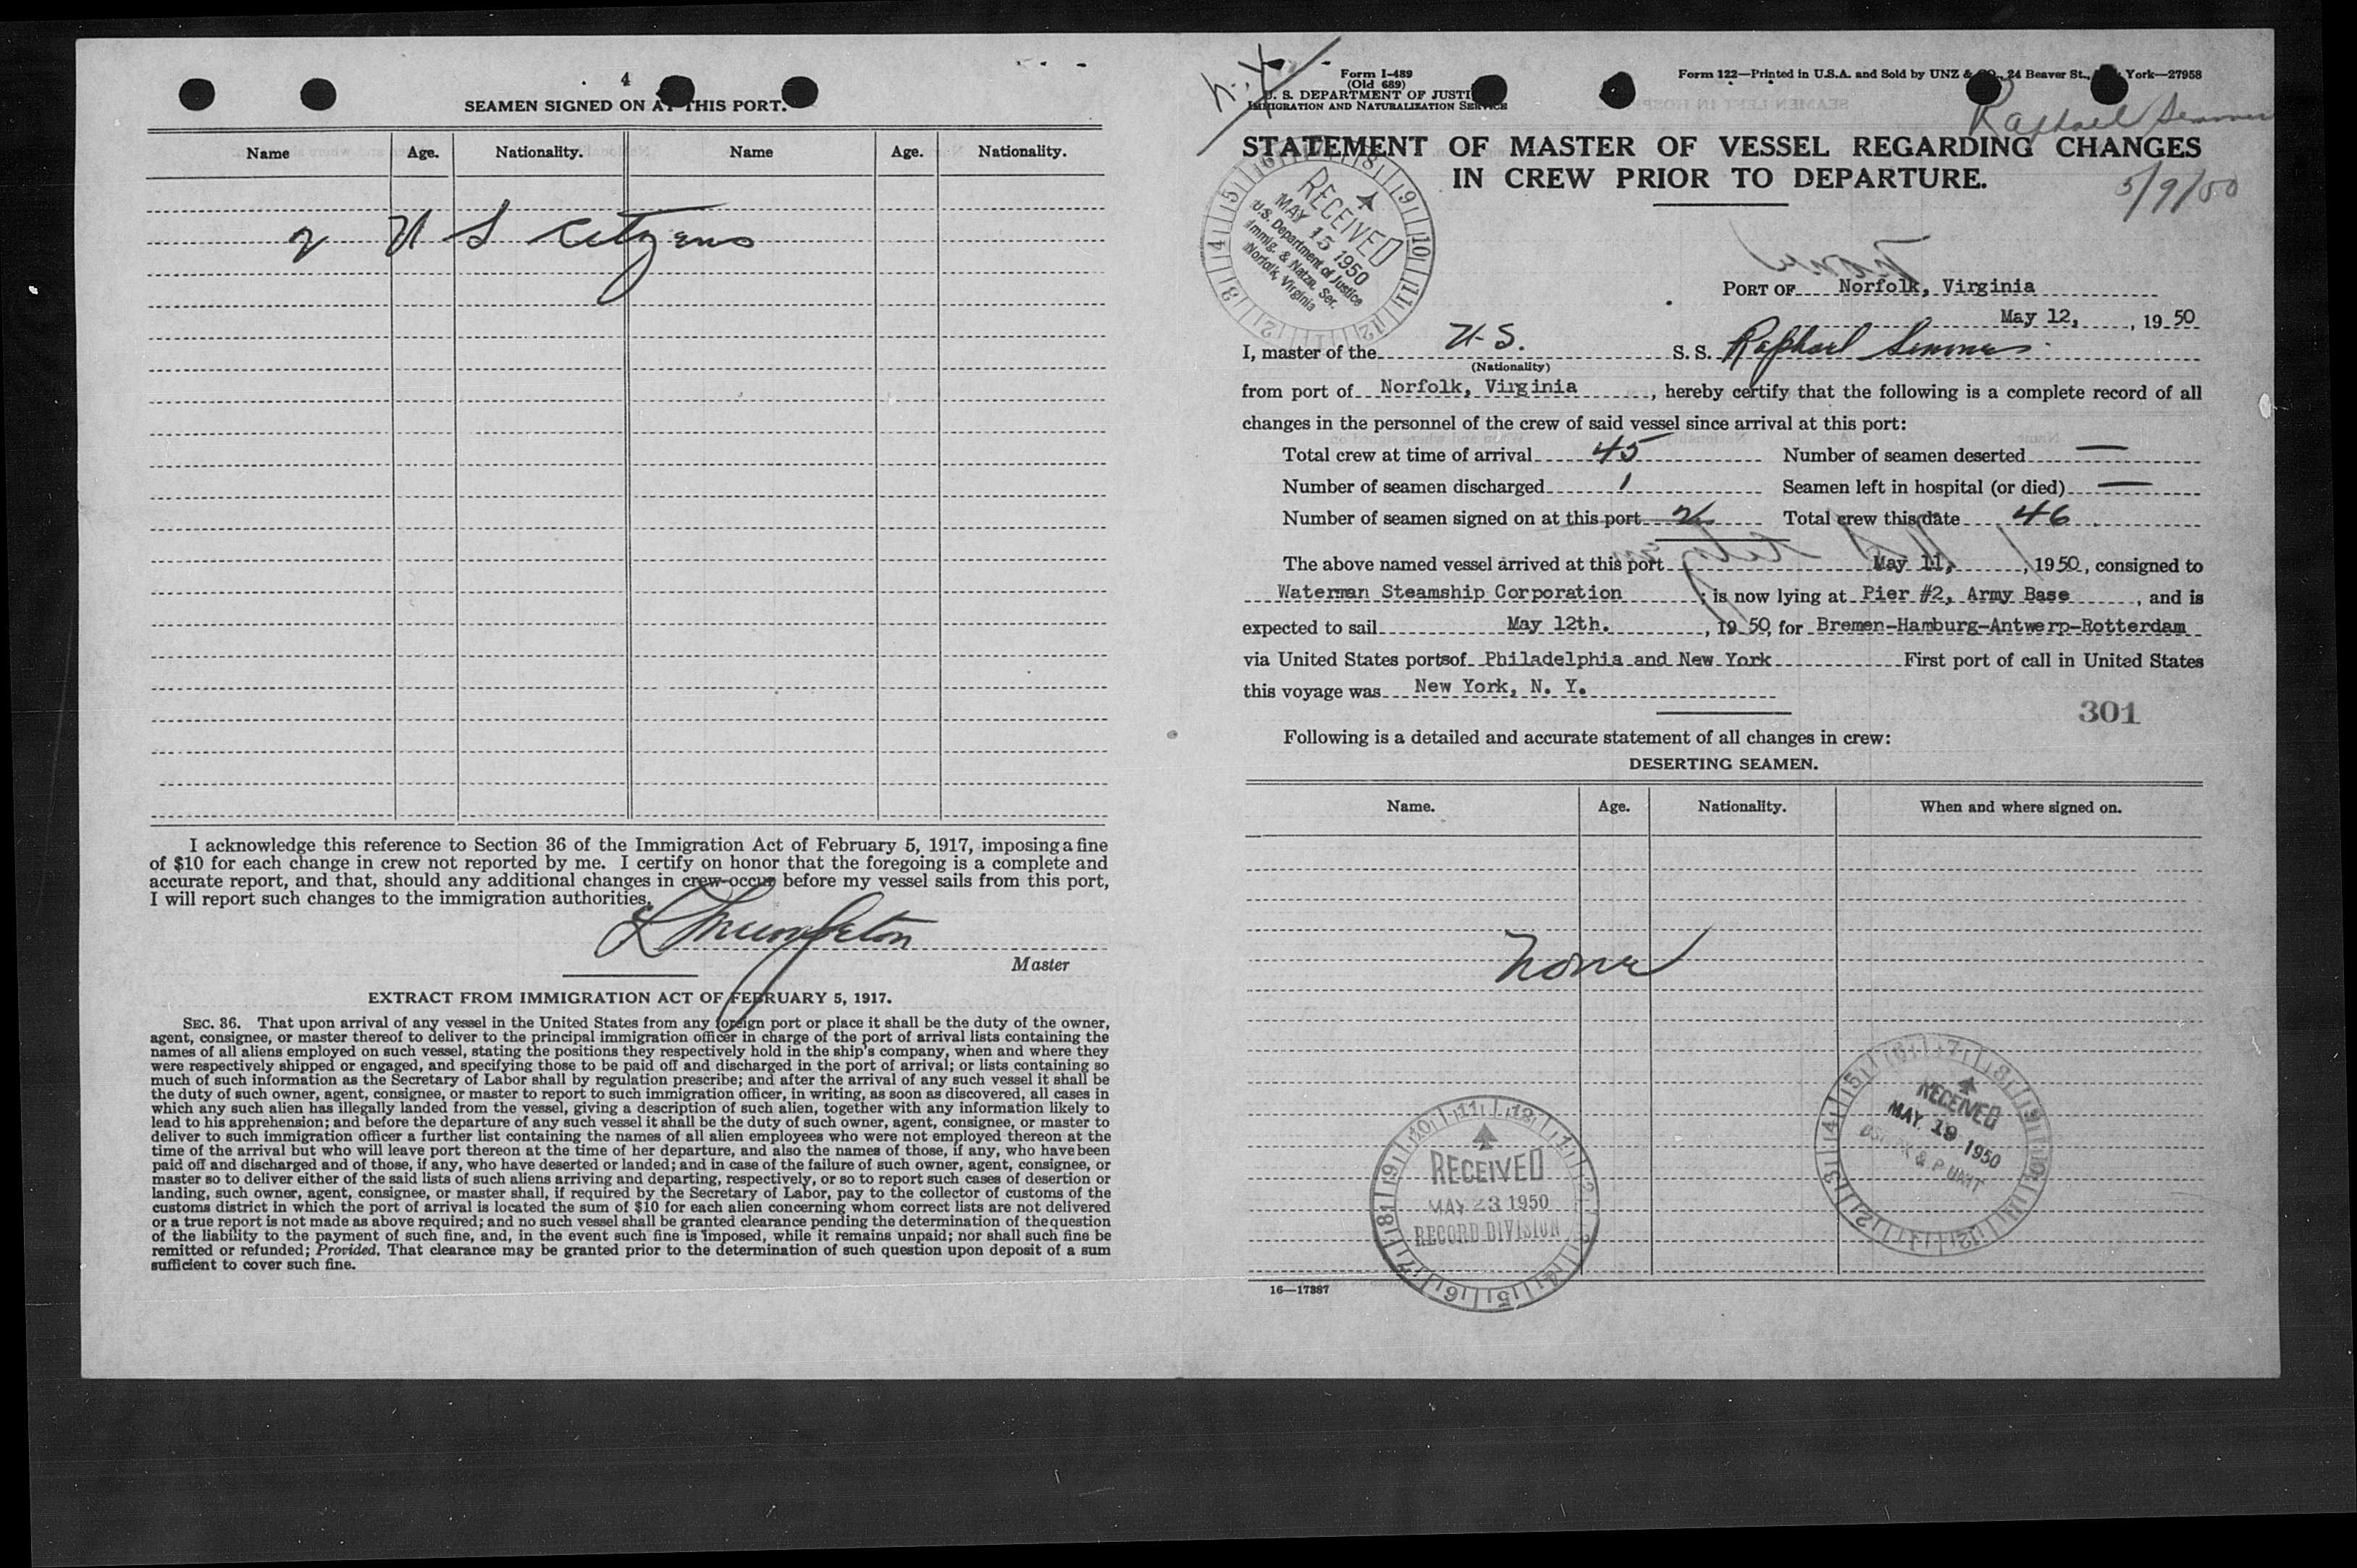 4
SEAMEN SIGNED ON AT THIS PORT.
Name Age. Nationality. Name Age. Nationality.
2 U S Citizens
I acknowledge this reference to Section 36 of the Immigration Act of February 5, 1917, imposing a fine
of $10 for each change in crew not reported by me. I certify on honor that the foregoing is a complete and
accurate report, and that, should any additional changes in crew occur before my vessel sails from this port,
I will report such changes to the immigration authorities.
Master
EXTRACT FROM IMMIGRATION ACT OF FEBRUARY 5, 1917.
SEC. 36. That upon arrival of any vessel in the United States from any foreign port or place it shall be the duty of the owner,
agent, consignee, or master thereof to deliver to the principal immigration officer in charge of the port of arrival lists containing the
names of all aliens employed on such vessel, stating the positions they respectively hold in the ship's company, when and where they
were respectively shipped or engaged, and specifying those to be paid off and discharged in the port of arrival; or lists containing so
much of such information as the Secretary of Labor shall by regulation prescribe; and after the arrival of any such vessel it shall be
the duty of such owner, agent, consignee, or master to report to such immigration officer, in writing, as soon as discovered, all cases in
which any such alien has illegally landed from the vessel, giving a description of such alien, together with any information likely to
lead to his apprehension; and before the departure of any such vessel it shall be the duty of such owner, agent, consignee, or master to
deliver to such immigration officer a further list containing the names of all alien employees who were not employed thereon at the
time of the arrival but who will leave port thereon at the time of her departure, and also the names of those, if any, who have been
paid off and discharged and of those, if any, who have deserted or landed; and in case of the failure of such owner, agent, consignee, or
master so to deliver either of the said lists of such aliens arriving and departing, respectively, or so to report such cases of desertion or
landing, such owner, agent, consignee, or master shall, if required by the Secretary of Labor, pay to the collector of customs of the
customs district in which the port of arrival is located the sum of $10 for each alien concerning whom correct lists are not delivered
or a true report is not made as above required; and no such vessel shall be granted clearance pending the determination of the question
of the liability to the payment of such fine, and, in the event such fine is imposed, while it remains unpaid; nor shall such fine be
remitted or refunded; Provided, That clearance may be granted prior to the determination of such question upon deposit of a sum
sufficient to cover such fine.
N.Y.
Form I-489
(Old 689)
U. S. DEPARTMENT OF JUSTICE
IMMIGRATION AND NATURALIZATION SERVICE
Form 122—Printed in U.S.A. and Sold by UNZ & CO., 24 Beaver St., York—27958
Raphael Semmes
5/9/50
STATEMENT OF MASTER OF VESSEL REGARDING CHANGES
IN CREW PRIOR TO DEPARTURE.
RECEIVED
MAY 15 1950
U.S. Department of Justice
Immig. & Natzn. Ser.
Norfolk, Virginia
PORT OF Norfolk, Virginia
May 12, , 19 50
I, master of the U.S. S. S. Raphael Semmes
(Nationality)
from port of Norfolk, Virginia , hereby certify that the following is a complete record of all
changes in the personnel of the crew of said vessel since arrival at this port:
Total crew at time of arrival 45 Number of seamen deserted —
Number of seamen discharged 1 Seamen left in hospital (or died) —
Number of seamen signed on at this port 2 Total crew this date 46
The above named vessel arrived at this port May 11, , 1950, consigned to
Waterman Steamship Corporation ; is now lying at Pier #2, Army Base , and is
expected to sail May 12th. , 19 50, for Bremen-Hamburg-Antwerp-Rotterdam
via United States portsof Philadelphia and New York First port of call in United States
this voyage was New York, N. Y.
301
Following is a detailed and accurate statement of all changes in crew:
DESERTING SEAMEN.
Name. Age. Nationality. When and where signed on.
None
RECEIVED
MAY 19 1950
& P UNIT
RECEIVED
MAY 23 1950
RECORD DIVISION
16—17887